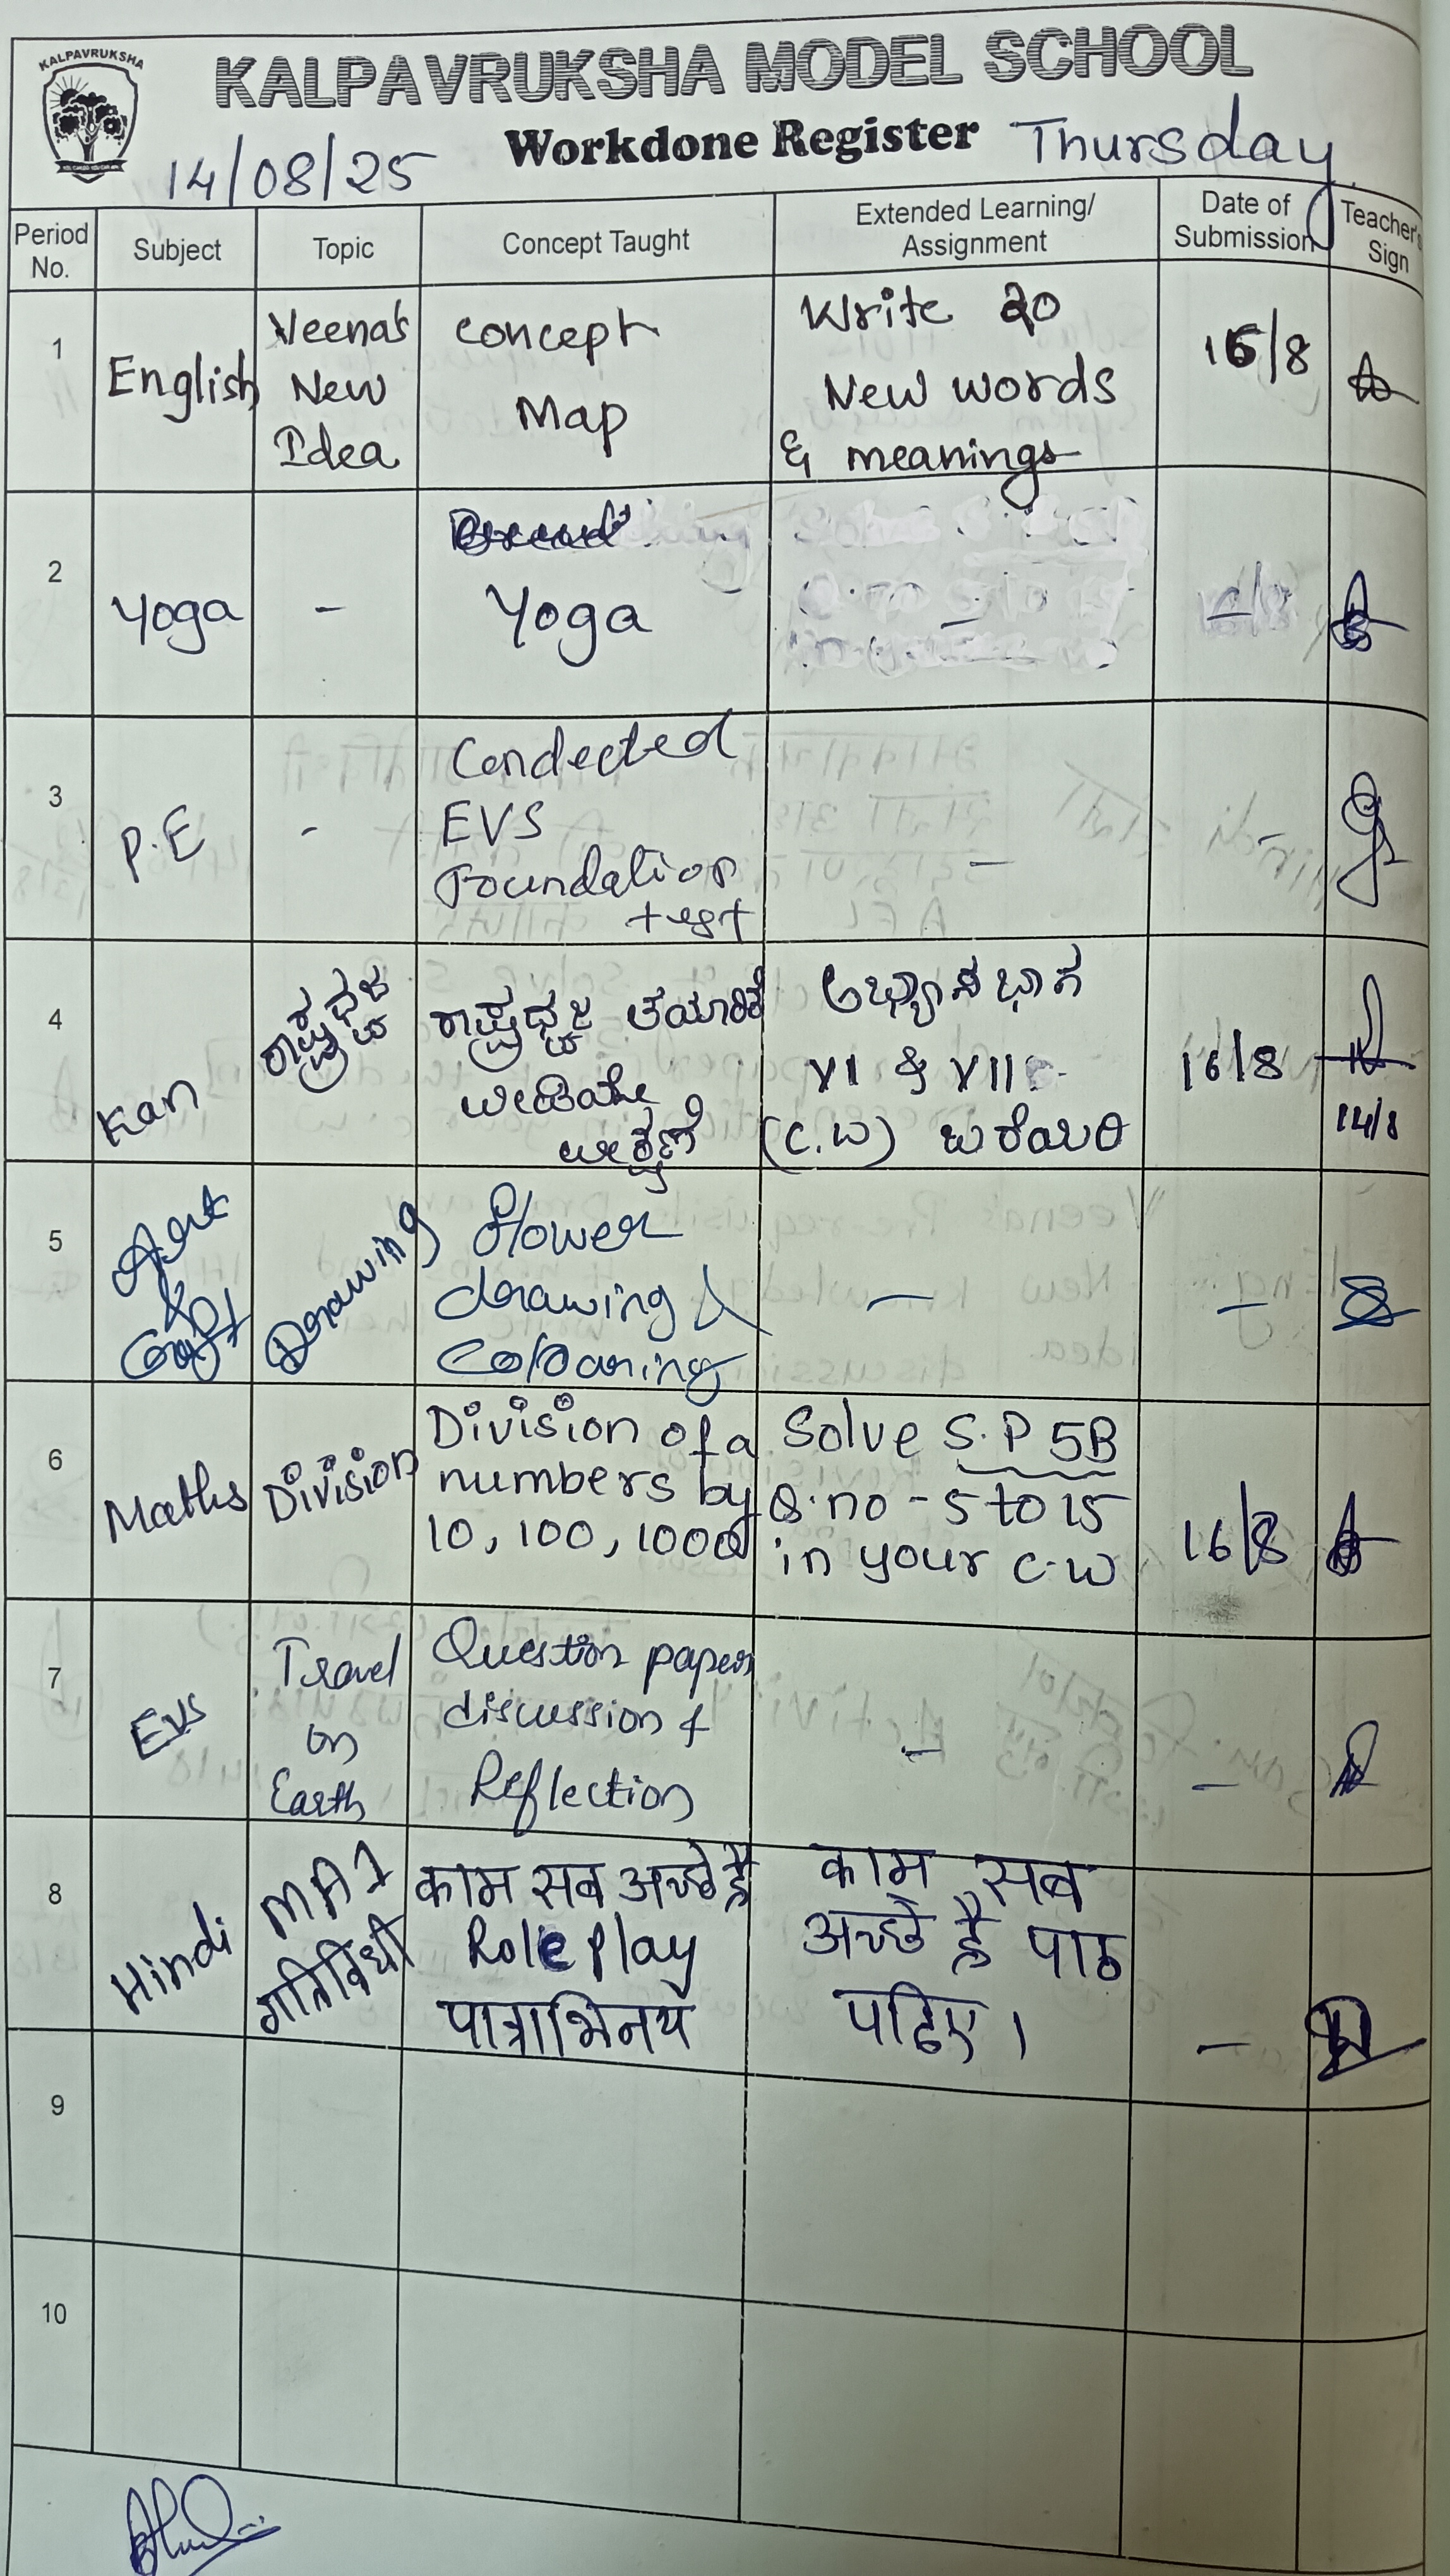 KALPAVRUKSHA
KALPAVRUKSHA MODEL SCHOOL
Workdone Register
14/08/25
Thursday
Period No.
Subject
Topic
Concept Taught
Extended Learning/ Assignment
Date of Submission
Teacher's Sign
1
English
Veena's
New
Idea
Concept
Map
Write 20
New words
& meanings
16/8
2
Yoga
-
Yoga
-
-
3
P.E
-
Condected
EVS
Foundation
test
-
-
4
Kan
ರಾಷ್ಟ್ರಧ್ವಜ
ರಾಷ್ಟ್ರಧ್ವಜ ತಯಾರಿಕೆ
ವೀಡಿಯೋ
ವೀಕ್ಷಣೆ
ಅಭ್ಯಾಸ ಭಾಗ
VI & VII
(C.W) ಬರೆಯಿರಿ
16/8
14/8
5
Art
&
Craft
Drawing
flower
drawing &
Colouring
-
-
6
Maths
Division
Division of a
numbers by
10, 100, 1000
Solve S.P 5B
Q.no - 5 to 15
in your C.W
16/8
7
EVS
Travel
on
Earth
Question paper
discussion &
Reflection
-
-
8
Hindi
MA 1
गतिविधी
काम सब अच्छे है
Role Play
पात्राभिनय
काम सब
अच्छे है पाठ
पढिए।
-
9
10